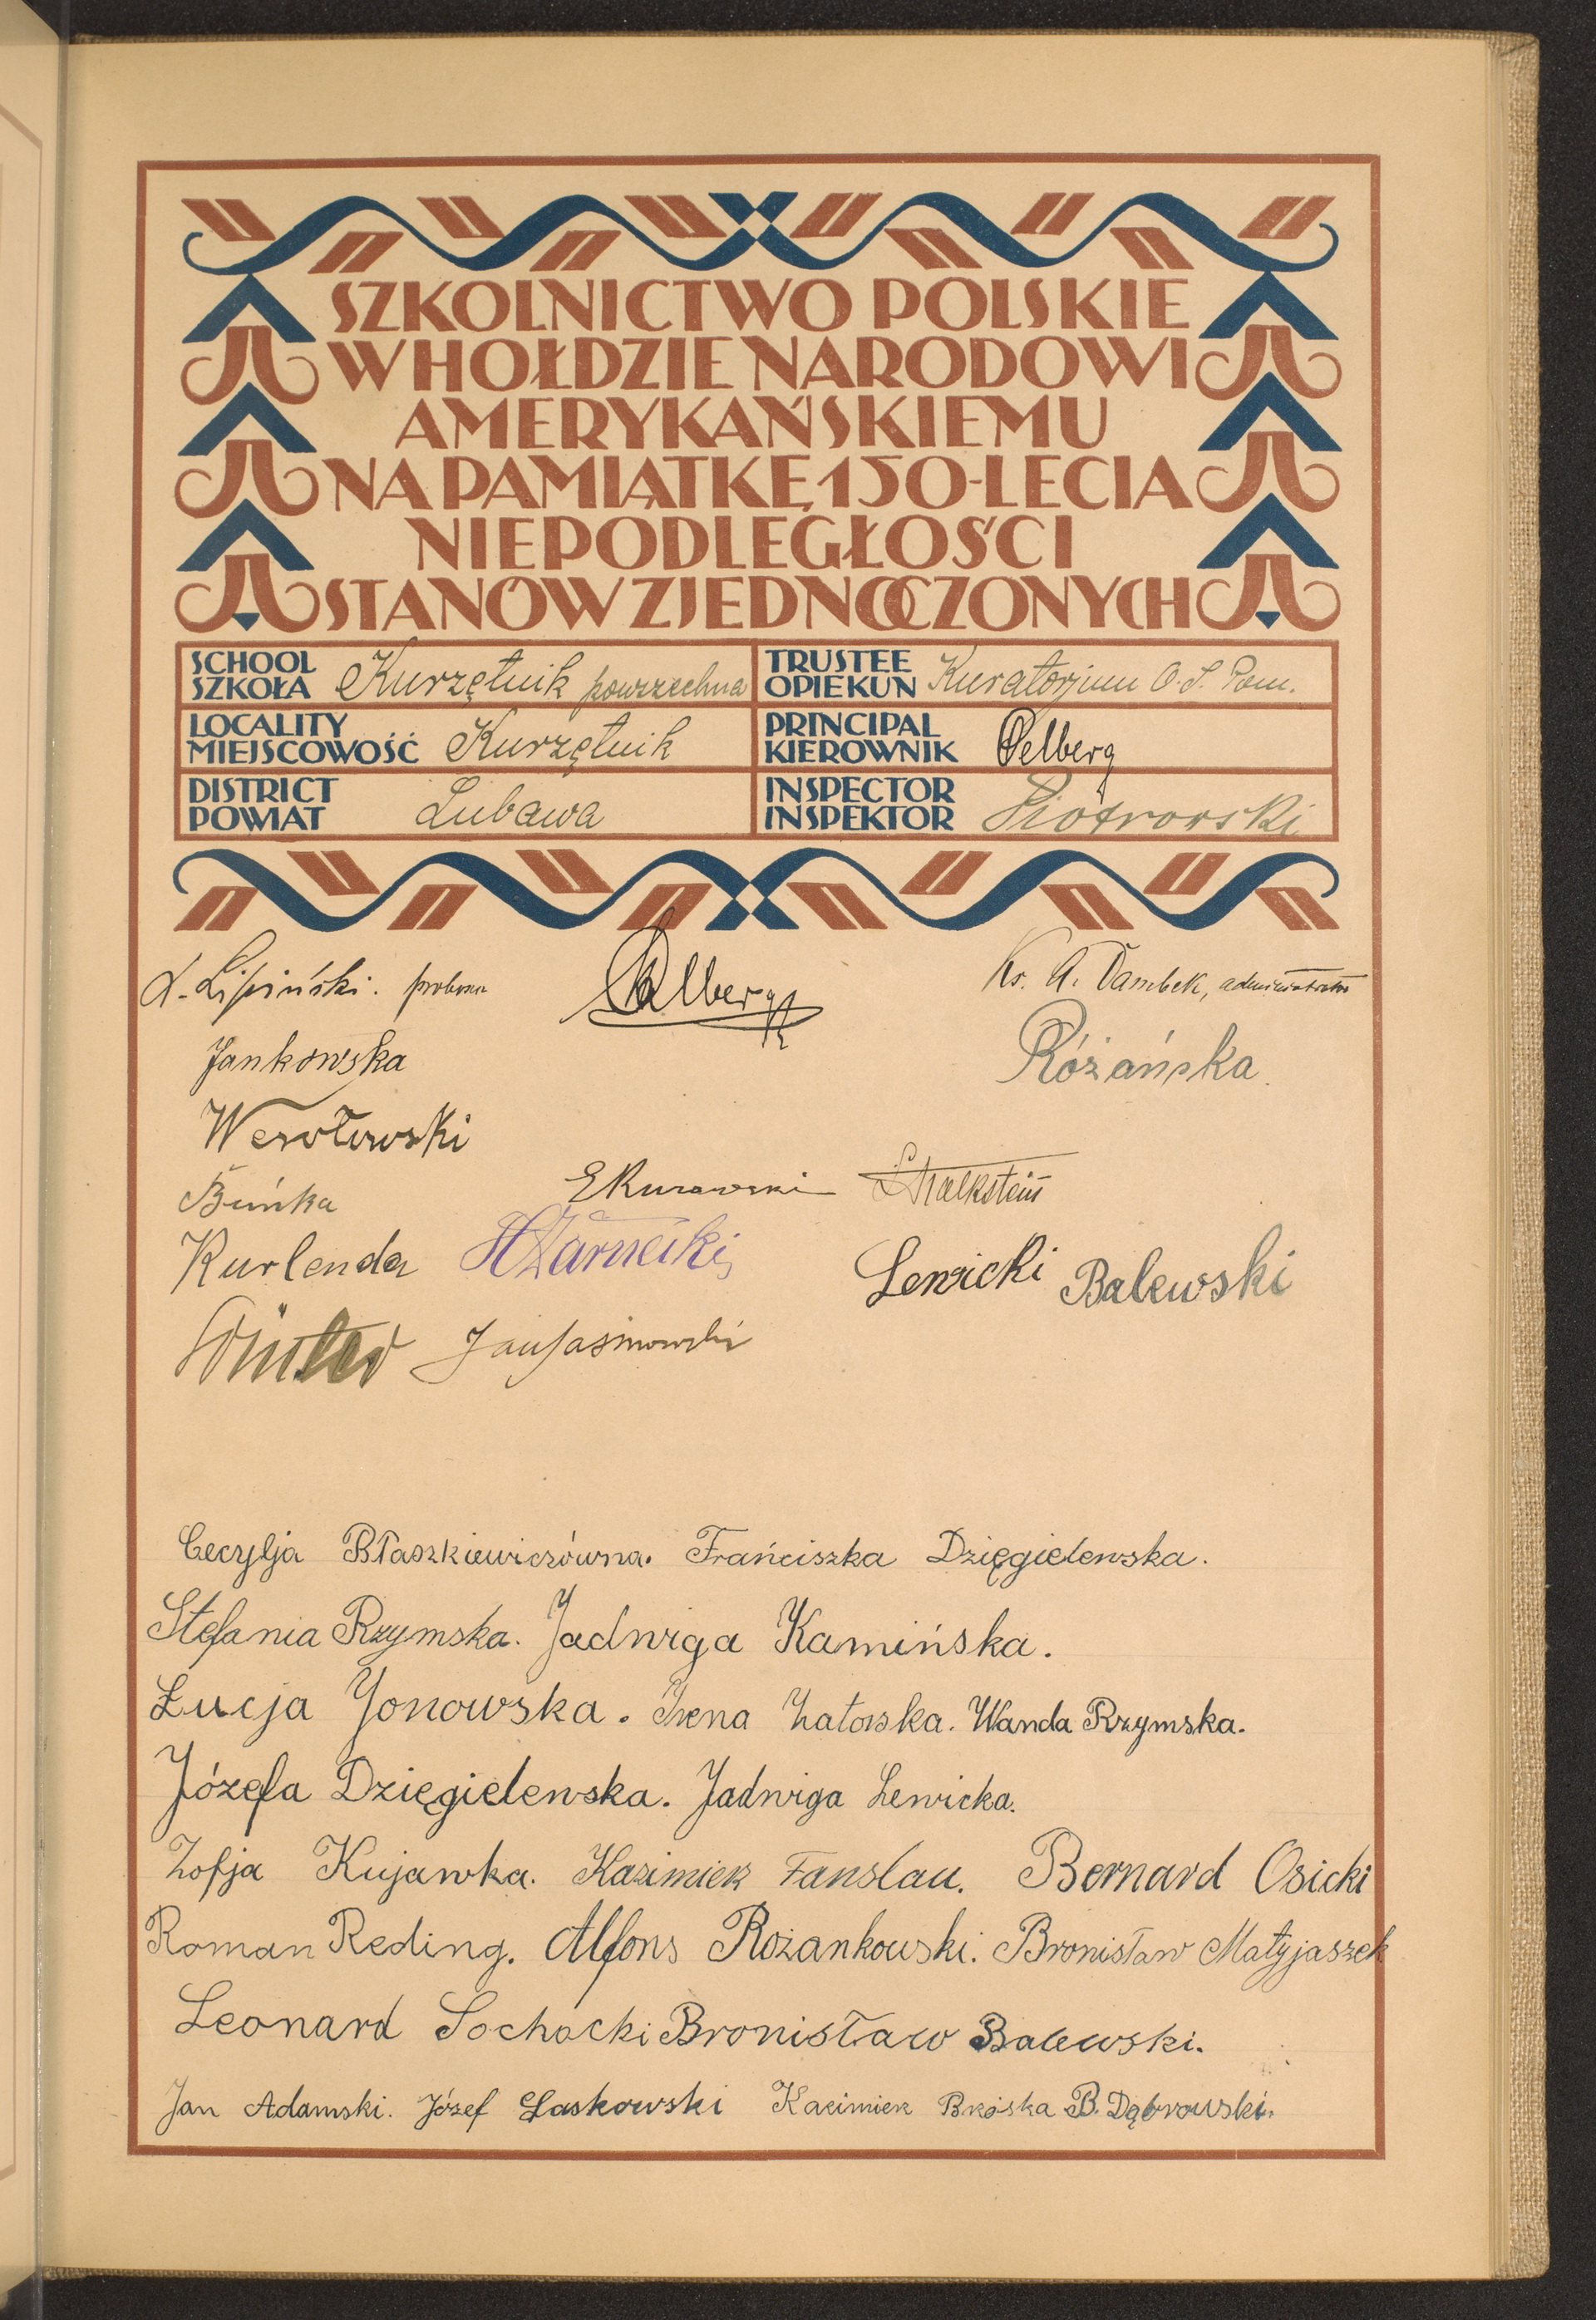 SZKOLNICTWO POLSKIE
W HOŁDZIE NARODOWI
AMERYKAŃSKIEMU
NA PAMIĄTKĘ 150-LECIA
NIEPODLEGŁOŚCI
STANÓW ZJEDNOCZONYCH
SCHOOL
SZKOŁA Kurzętnik powszechna
TRUSTEE
OPIEKUN Kuratorjum O. S. Pom.
LOCALITY
MIEJSCOWOŚĆ Kurzętnik
PRINCIPAL
KIEROWNIK Pelberg
DISTRICT
POWIAT Lubawa
INSPECTOR
INSPEKTOR Piotrowski
Lipiński. Ks. A. Dambek, administrator
Jankowska Różańska
Wesołowski
Buńka Kalkstein
Kurlenda Czarnecki Lewicki Balewski
Jan Jasinowski
Cecylja Błaszkiewiczówna. Franciszka Dzięgielewska.
Stefania Rzymska. Jadwiga Kamińska.
Łucja Jonowska. Irena Zatorska. Wanda Rzymska.
Józefa Dzięgielewska. Jadwiga Lewicka.
Zofja Kujawka. Kazimierz Fanslau. Bernard Osicki
Roman Reding. Alfons Rożankowski. Bronisław Matyjaszek
Leonard Sochacki Bronisław Balewski.
Jan Adamski. Józef Laskowski Kazimierz Brzóska B. Dąbrowski.